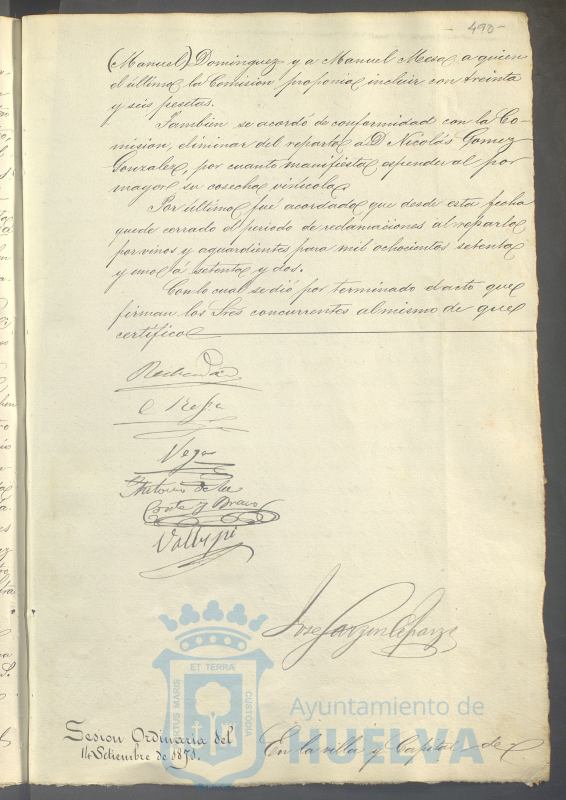 - 490 -
(Manuel) Dominguez y a Manuel Mesa, a quien
el último la Comision proponia incluir con treinta
y seis pesetas.
Tambien se acordó de conformidad con la Co-
mision, eliminar del reparto a D. Nicolás Gomez
Gonzalez, por cuanto manifiesta espender al por
mayor su cosecha vinicola.
Por último fué acordado que desde esta fecha
quede cerrado el periodo de reclamaciones al reparto
por vinos y aguardientes para mil ochocientos setenta
y uno a setenta y dos.
Con lo cual se dió por terminado el acto que
firman los Sres concurrentes al mismo de que
certifico
Vega
Antonio de la
Corte y Bravo
Jose Garzon
ET TERRA
PORTUS MARIS
CUSTODIA
Ayuntamiento de
HUELVA
Sesion Ordinaria del
14 Setiembre de 1871.
En la villa y Capital de